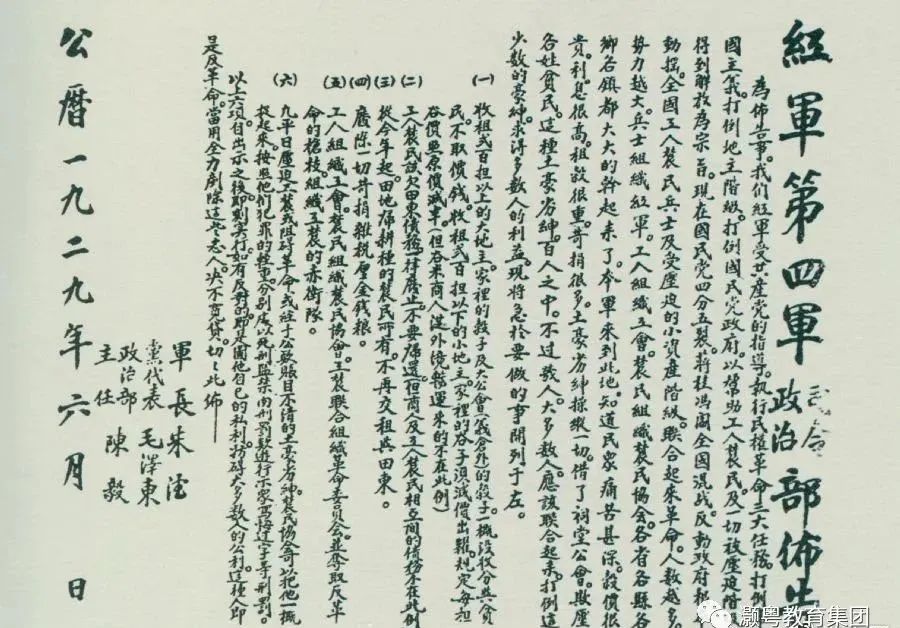 紅軍第四軍司令部政治部佈告
為佈告事。我們紅軍受共產党的指導。執行民權革命三大任務。打倒
國主義。打倒地主階級。打倒國民党政府。以幫助工人農民及一切被壓迫階級
得到解放為宗旨。現在國民党四分五裂。蔣桂馮閻全國混战。反動政府根
動搖。全國工人農民兵士及受壓迫的小資產階級。聯合起來革命。人数越多。
勢力越大。兵士組織紅軍。工人組織工會。農民組織農民協会。各省各縣各
鄉各鎮都大大的幹起來了。本軍來到此地。知道民衆痛苦甚深。穀價很
貴。利息很高。租穀很重。苛捐很多。土豪劣紳操縱一切。借了祠堂公會。欺壓
各姓貧民。這種土豪劣紳。百人之中。不过数人。大多数人。應該联合起來。打倒這
少数的豪紳。求得多数人的利益。現將急於要做的事開列于左。
(一) 收租弍百担以上的大地主。家裡的穀子及大公會(義倉外)的穀子一概沒收分與貧
民。不取價錢。收租弍百担以下的小地主。家裡的谷子沒減價出糶。規定每担
谷價照原價減半。(但谷米商人從外境販運來的不在此例)
(二) 工人農民該欠田東債務。一律廢止。不要歸還。(但商人及工人農民相互間的債務不在此例
(三) 從今年起。田地歸耕種的農民所有。不再交租與田東。
(四) 廢除一切苛捐雜稅厘金錢粮。
(五) 工人組織工會。農民組織農民協會。工農联合組織革命委員会。並奪取反革
命的槍枝。組織工農的赤衛隊。
(六) 凡平日壓迫工農或阻碍革命。或經手公欵賬目不清的土豪劣紳。農民協会可以把他一概
捉起來。按照他們犯罪的輕重。分別处以死刑監禁肉刑罰款遊行示衆寫悔过字等刑罰。
以上六項。自出示之後。即刻实行。如有反對的。即是圖他自己的私利。妨碍大多数人的公利。這種人即
是反革命。當用全力剷除這些惡人。決不寬貸。切切此佈
軍長朱德
党代表毛澤東
政治部主任陳毅
公曆一九二九年六月 日
灏粤教育集团